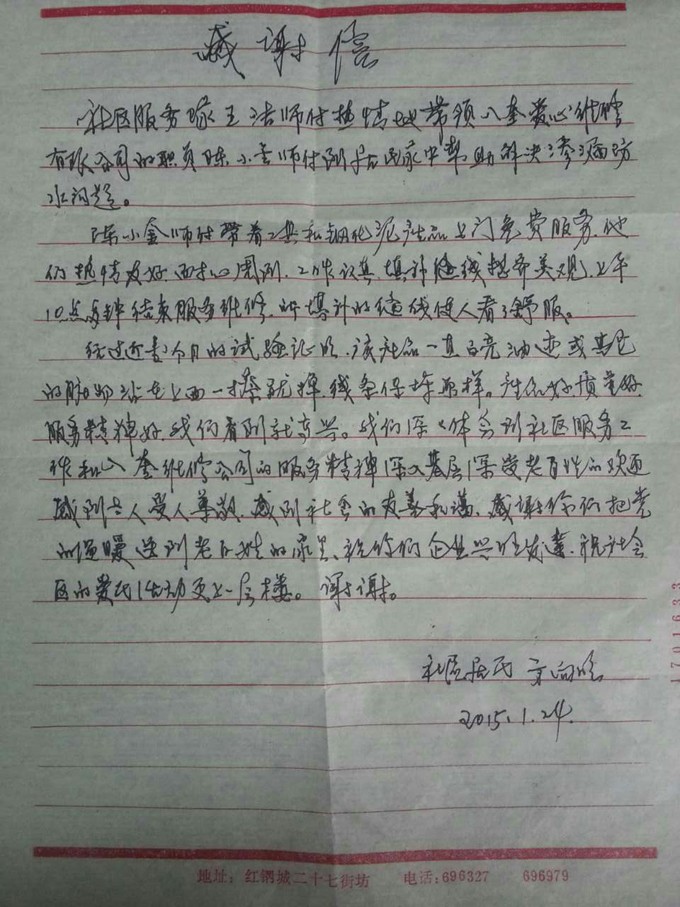 感谢信
社区服务队王洁师付热情地带领八奎爱心维修
有限公司的职员陈小金师付到居民家中帮助解决渗漏防
水问题。
陈小金师付带着工具和钢化泥产品上门免费服务，他
们热情友好、面面周到、工作认真，填补缝线整齐美观，上午
10点多钟结束服务维修，所填补的缝线使人看了舒服。
经过近一个月的试验证明，该产品一直白亮油迹或其它
的脏物沾在上面一擦就掉线条保持原样。产品好质量好
服务精神好我们看到就高兴。我们深々体会到社区服务工
作和八奎维修公司的服务精神深入基层深受老百姓的欢迎
感到老人受人尊敬，感到社会的友善和谐，感谢你们把党
的温暖送到老百姓的家里、祝你们企业兴旺发达，祝社会
区的爱民活动更上一层楼。谢谢。
社区居民
2015.1.24.
1701633
地址：红钢城二十七街坊 电话：696327 696979